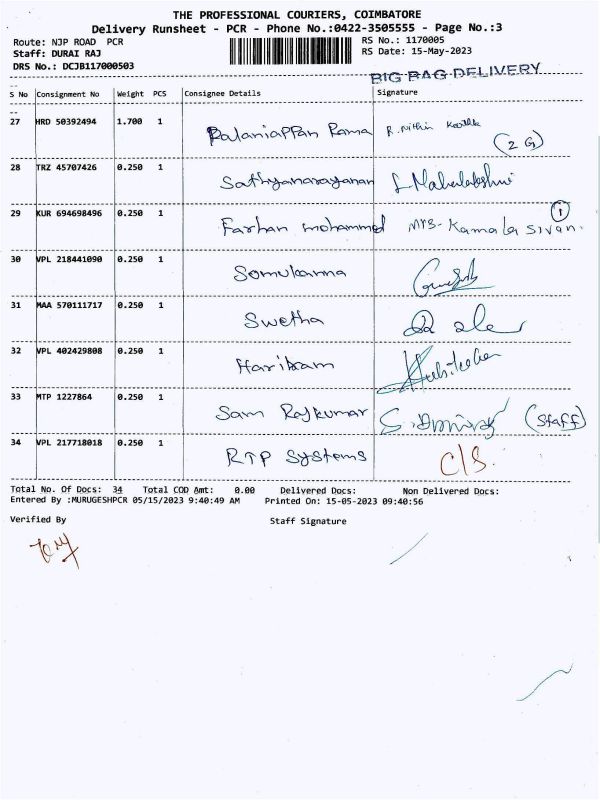 THE PROFESSIONAL COURIERS, COIMBATORE
Delivery Runsheet - PCR - Phone No.:0422-3505555 - Page No.:3
Route: NJP ROAD PCR RS No.: 1170005
Staff: DURAI RAJ RS Date: 15-May-2023
DRS No.: DCJB117000503
BIG BAG DELIVERY
S No Consignment No Weight PCS Consignee Details Signature
27 HRD 50392494 1.700 1 Palaniappan Rama R. Nithin
(2 G)
28 TRZ 45707426 0.250 1 Sathyanarayanan L Mahalakshmi
29 KUR 694698496 0.250 1 Farhan mohammed Mrs- Kamala Sivan. 1
30 VPL 218441090 0.250 1 Somukanna
31 MAA 570111717 0.250 1 Swetha
32 VPL 402429808 0.250 1 Hariram
33 MTP 1227864 0.250 1 Sam Rajkumar (Staff)
34 VPL 217718018 0.250 1 RTP Systems C/S.
Total No. Of Docs: 34 Total COD Amt: 0.00 Delivered Docs: Non Delivered Docs:
Entered By :MURUGESHPCR 05/15/2023 9:40:49 AM Printed On: 15-05-2023 09:40:56
Verified By Staff Signature